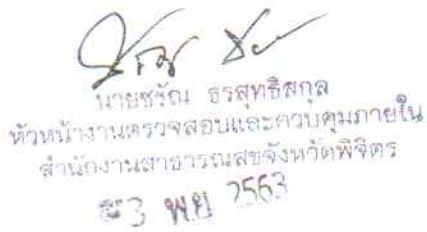 นายชรัณ ธรสุทธิสกุล
หัวหน้างานตรวจสอบและควบคุมภายใน
สำนักงานสาธารณสุขจังหวัดพิจิตร
3 พย 2563